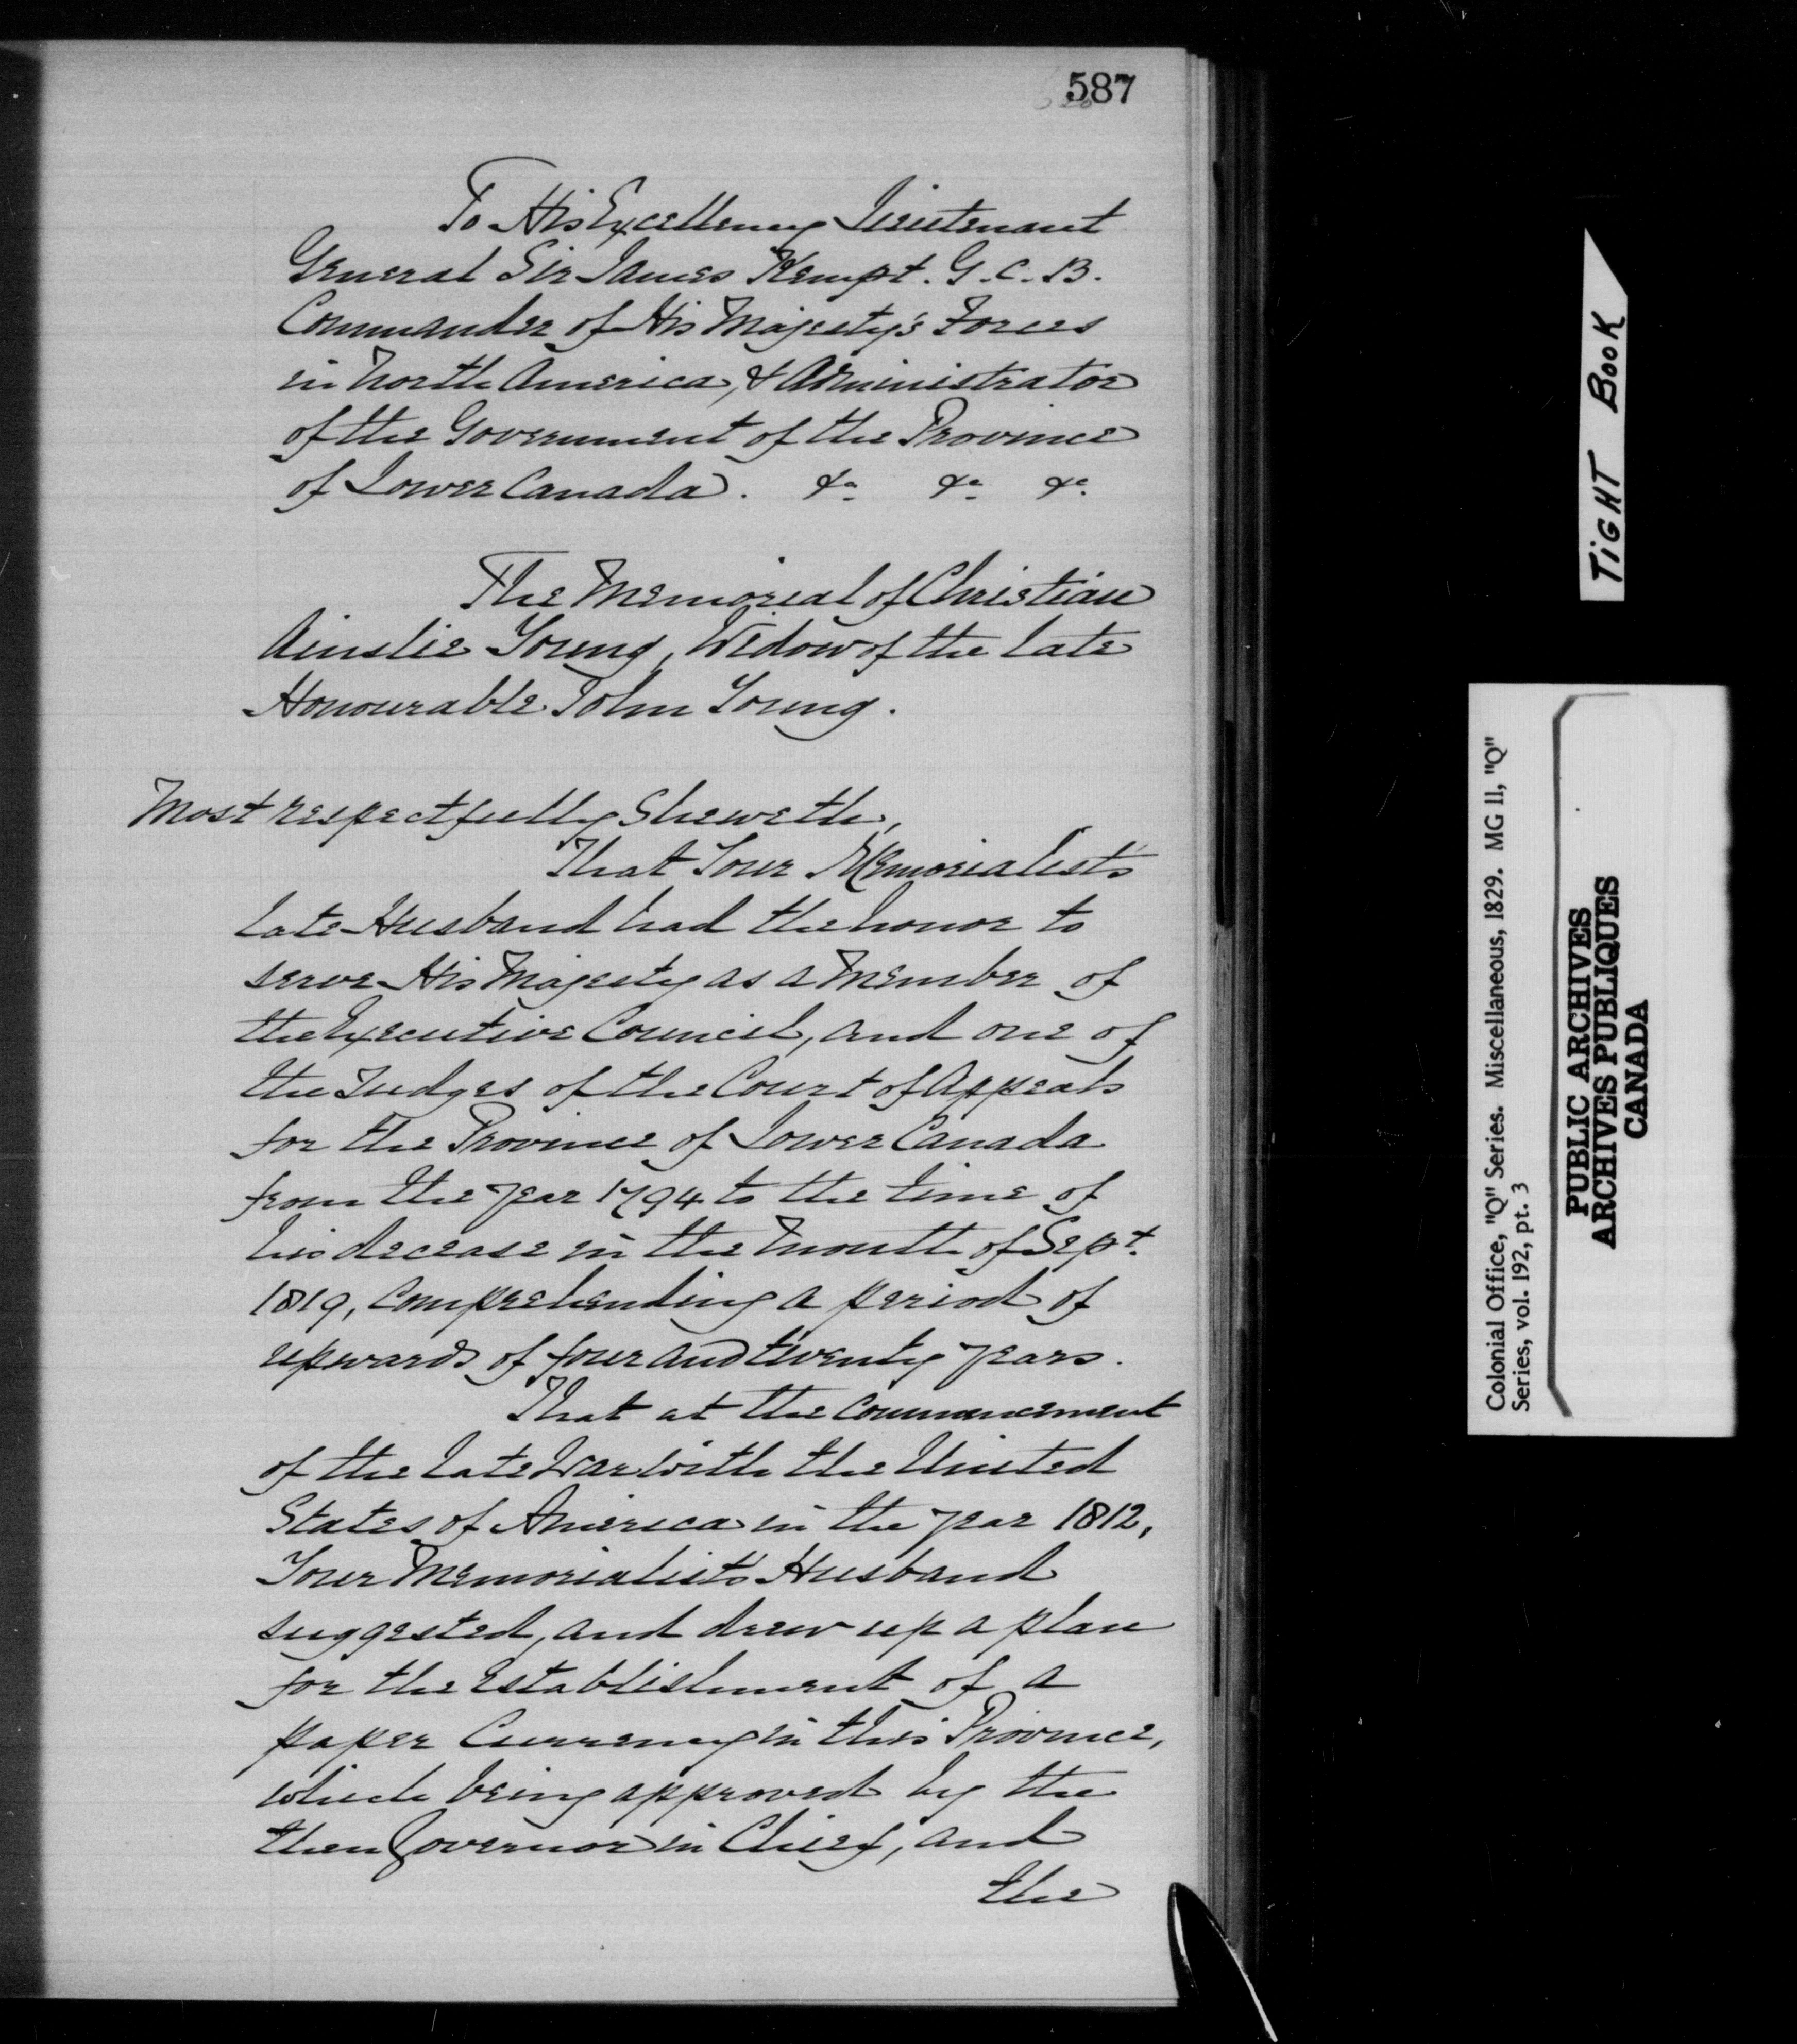 587
To His Excellency Lieutenant
General Sir James Kempt. G.C.B.
Commander of His Majesty's Forces
in North America, & Administrator
of the Government of the Province
of Lower Canada. &c &c &c.
The Memorial of Christian
Ainslie Young, Widow of the late
Honourable John Young.
Most respectfully Sheweth,
That Your Memorialist's
late Husband had the honor to
serve His Majesty as a Member of
the Executive Council, and one of
the Judges of the Court of Appeals
for the Province of Lower Canada
from the year 1794 to the time of
his decease in the Month of Sept.
1819, comprehending a period of
upwards of four and twenty years.
That at the commencement
of the late War with the United
States of America in the year 1812,
Your Memorialist's Husband
suggested, and drew up a plan
for the establishment of a
paper Currency in this Province,
which being approved by the
then Governor in Chief, and
the
TIGHT BOOK
Colonial Office, "Q" Series. Miscellaneous, 1829. MG 11, "Q"
Series, vol. 192, pt. 3
PUBLIC ARCHIVES
ARCHIVES PUBLIQUES
CANADA